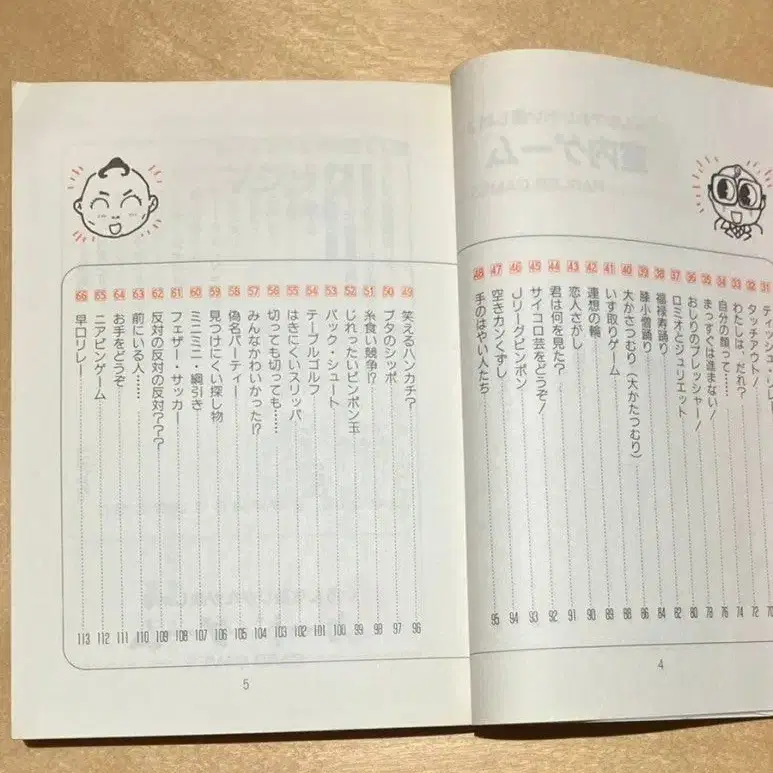 31 ティッシュ・リレー 70
32 タッチアウト! 72
33 わたしは、だれ? 74
34 自分の顔って…… 76
35 まっすぐは進まない! 78
36 おしりのプレッシャー! 80
37 ロミオとジュリエット 82
38 福禄寿踊り 84
39 膝小僧踊り 86
40 大かさつむり(大かたつむり) 88
41 いす取りゲーム 89
42 連想の輪 90
43 恋人さがし 91
44 君は何を見た? 92
45 サイコロ芸をどうぞ! 93
46 Jリーグピンポン 94
47 空きカンくずし 95
48 手のはやい人たち
4
49 笑えるハンカチ? 96
50 ブタのシッポ 97
51 糸食い競争!? 98
52 じれったいピンポン玉 99
53 バック・シュート 100
54 テーブルゴルフ 101
55 はきにくいスリッパ 102
56 切っても切っても…… 103
57 みんなかわいかった!? 104
58 偽名パーティー 105
59 見つけにくい探し物 106
60 ミニミニ・綱引き 107
61 フェザー・サッカー 108
62 反対の反対の反対??? 109
63 前にいる人…… 110
64 お手をどうぞ 111
65 ニアピンゲーム 112
66 早口リレー 113
5